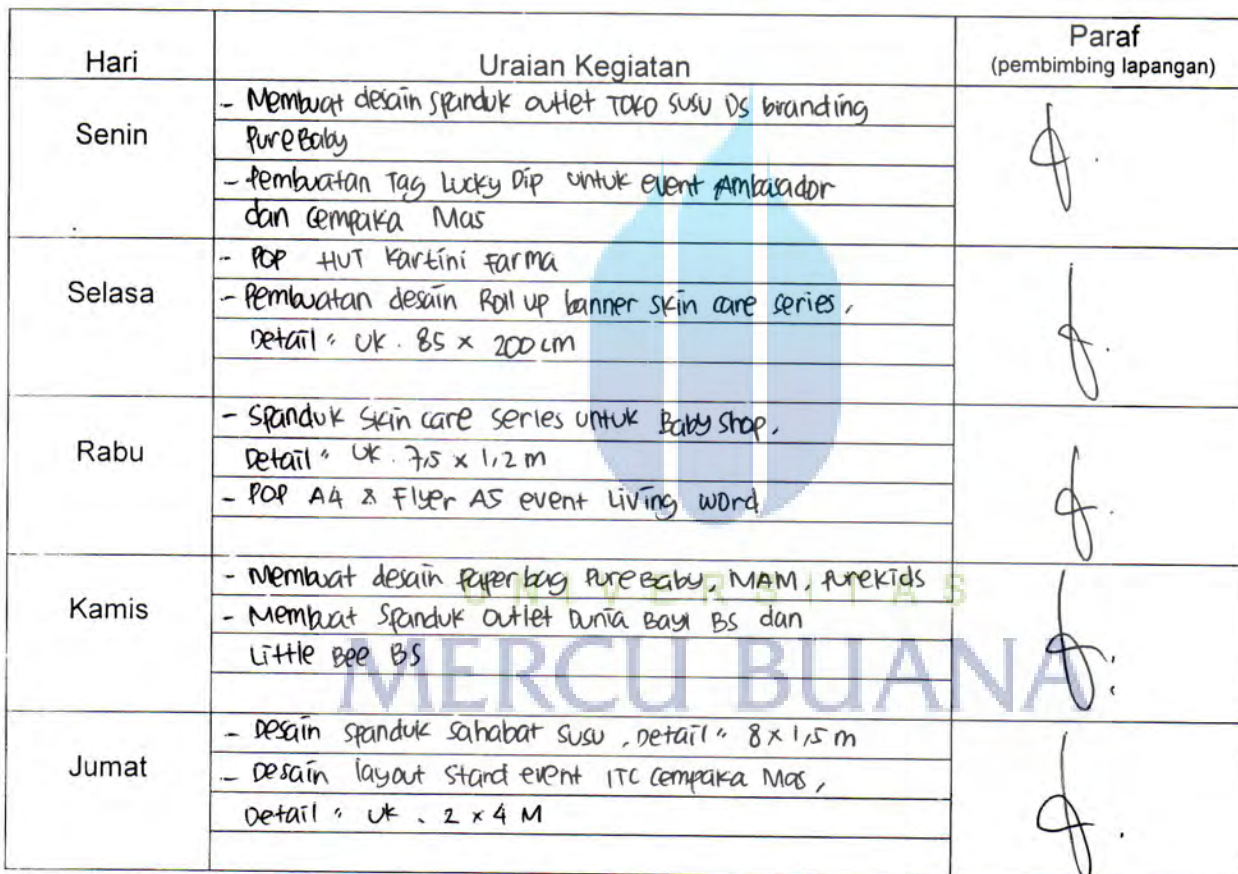 Hari
Uraian Kegiatan
Paraf
(pembimbing lapangan)
Senin
- Membuat desain spanduk outlet Toko Susu DS branding
PureBaby
- Pembuatan Tag Lucky Dip untuk event Ambasador
dan Cempaka Mas
Selasa
- POP HUT Kartini Farma
- Pembuatan desain Roll up banner skin care series,
Detail " uk. 85 x 200 cm
Rabu
- Spanduk skin care series untuk Baby shop.
Detail " uk. 7,5 x 1,2 m
- POP A4 & Flyer A5 event Living word
Kamis
- Membuat desain paperbag PureBaby, MAM, purekids
- Membuat spanduk outlet Dunia Bayi BS dan
Little Bee BS
Jumat
- Desain spanduk sahabat susu, Detail " 8 x 1,5 m
- Desain layout stand event ITC Cempaka Mas,
Detail " uk. 2 x 4 M
UNIVERSITAS
MERCU BUANA